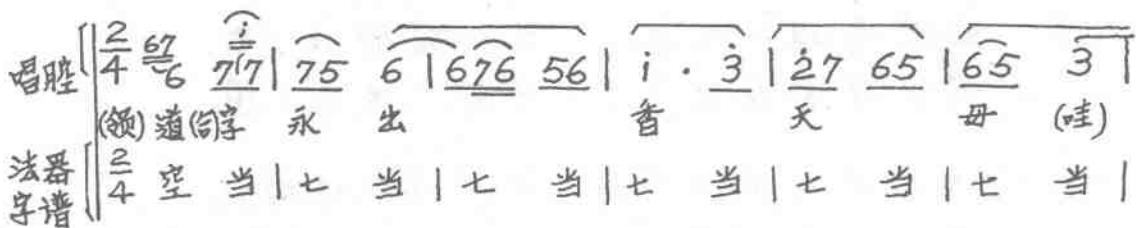 唱腔 2/4 67 6 7 i 7 | 75 6 | 676 56 | i · 3 | 27 65 | 65 3 |
(领) 道(台)字 永 出 香 天 母 (哇)
法器字谱 2/4 空 当 | 七 当 | 七 当 | 七 当 | 七 当 | 七 当 |